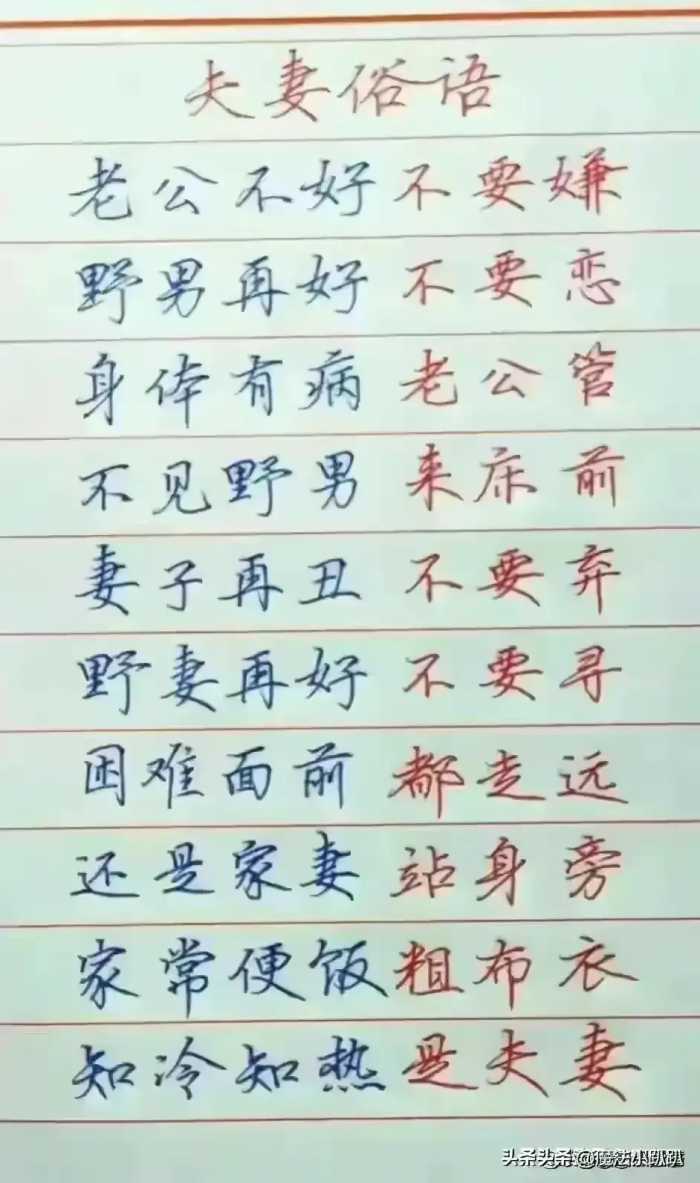 夫妻俗语
老公不好不要嫌
野男再好不要恋
身体有病老公管
不见野男来床前
妻子再丑不要弃
野妻再好不要寻
困难面前都走远
还是家妻站身旁
家常便饭粗布衣
知冷知热是夫妻
头条 @魔法小趴趴